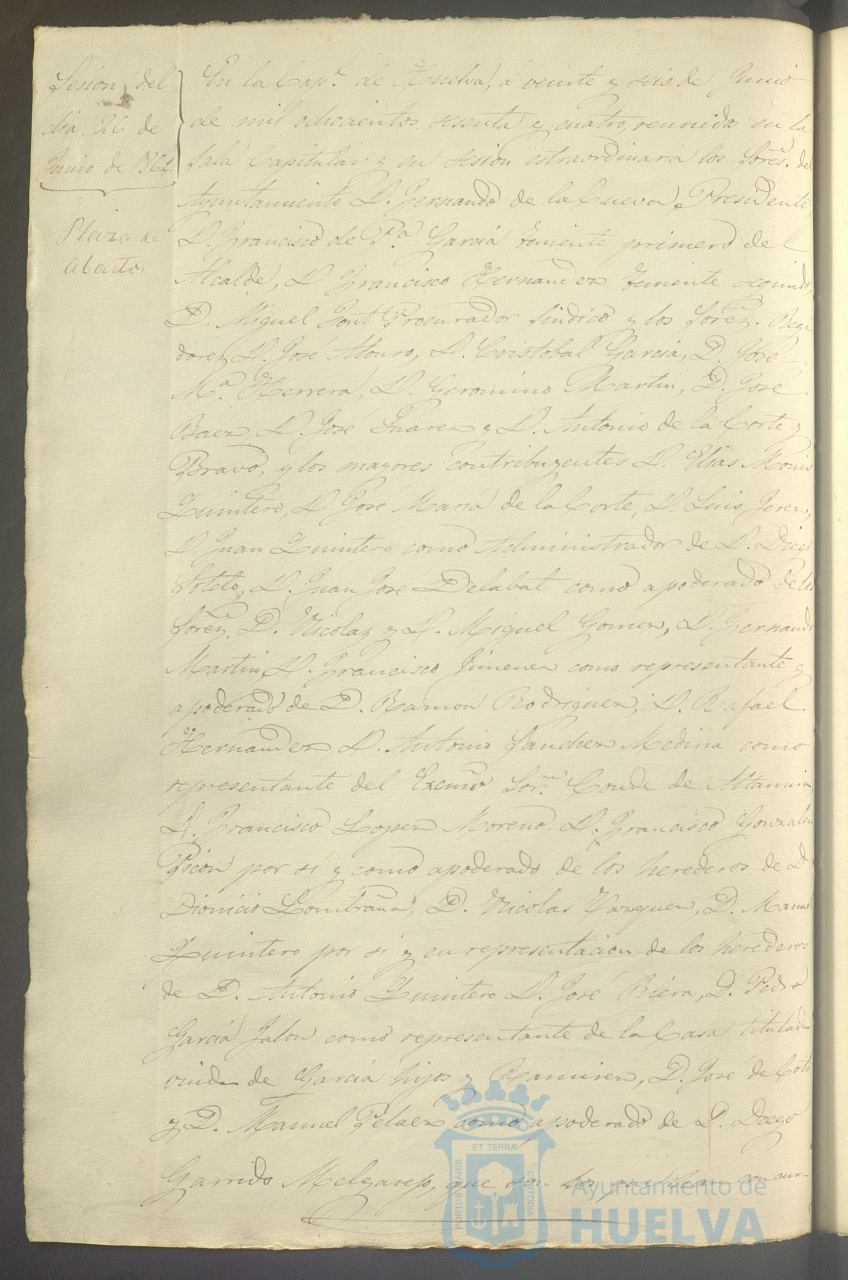 Sesion del
dia 26 de
Junio de 1864.
Plaza de
abastos
En la Cap.l de Huelva, á veinte y seis de Junio
de mil ochocientos sesenta y cuatro, reunido en la
Sala Capitular y en sesion estraordinaria los Sores. del
Ayuntamiento D. Fernando de la Cueva, Presidente,
D. Francisco de P.a Garcia teniente primero de
Alcalde, D. Francisco Hernandez teniente segundo,
D. Miguel Procurador Sindico y los Sores. Regi
dores D. José Alonso, D. Cristobal Garcia, D. José
M.a Herrera, D. Geronimo Martin, D. José
Baez, D. José Suarez y D. Antonio de la Corte y
Bravo, y los mayores contribuyentes D. Elias
Quintero, D. José Maria de la Corte, D. Luis Jerez,
D. Juan Quintero como Administrador de D. Diego
Sotelo, D. Juan José Delabat como apoderado de los
Sores. D. Nicolas y D. Miguel Gomez, D. Fernando
Martin, D. Francisco Jimenez como representante y
apoderado de D. Ramon Rodriguez, D. Rafael
Hernandez, D. Antonio Sanchez Medina como
representante del Excmo Sor. Conde de Altamira,
D. Francisco Lopez Moreno, D. Francisco Gonzalez
Picón por si y como apoderado de los herederos de D.
Dionicio D. Nicolas Vazquez, D. Manuel
Quintero por si y en representacion de los herederos
de D. Antonio Quintero D. José Riera, D. Pedro
Garcia Jalon como representante de la Casa titulada
viuda de Garcia hijos y Ramirez, D. José de Coto
y D. Manuel Pelaez como apoderado de D. Diego
Garrido Melgarejo, que son los
ET TERRÆ
PORTUS MARIS
CUSTODIA
Ayuntamiento de
HUELVA